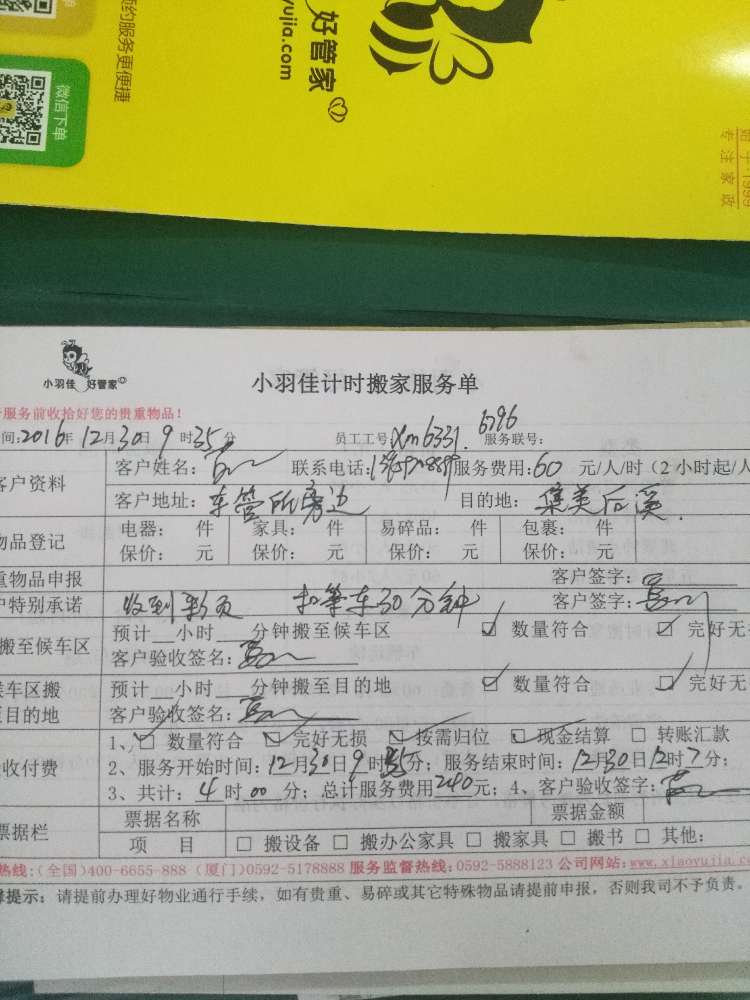 预约服务更便捷
微信下单
好管家
yujia.com
始于1999
专注家政
小羽佳 好管家
小羽佳计时搬家服务单
服务前收拾好您的贵重物品!
间:2016年12月30日9时35分 员工工号:Xm6331. 6796 服务联号:
客户资料
客户姓名: 联系电话: 服务费用:60 元/人/时(2小时起/人
客户地址:车管所旁边 目的地:集美后溪
物品登记
电器: 件 家具: 件 易碎品: 件 包裹: 件
保价: 元 保价: 元 保价: 元 保价: 元
重物品申报 客户签字:
户特别承诺 收到 扣等车30分钟 客户签字:
搬至候车区
预计__小时___分钟搬至候车区 ☑ 数量符合 ☑ 完好无
客户验收签名:
候车区搬至目的地
预计__小时___分钟搬至目的地 ☑ 数量符合 ☑ 完好无
客户验收签名:
收付费
1、☑ 数量符合 ☑ 完好无损 ☑ 按需归位 ☑ 现金结算 □ 转账汇款
2、服务开始时间:12月30日9时35分; 服务结束时间:12月30日12时7分;
3、共计:4时00分; 总计服务费用240元; 4、客户验收签字:
票据栏
票据名称 票据金额
项 目 □ 搬设备 □ 搬办公家具 □ 搬家具 □ 搬书 □ 其他:
热线:(全国)400-6655-888 (厦门)0592-5178888 服务监督热线:0592-5888123 公司网站:www.xiaoyujia.co
提示: 请提前办理好物业通行手续,如有贵重、易碎或其它特殊物品请提前申报,否则我司不予负责。